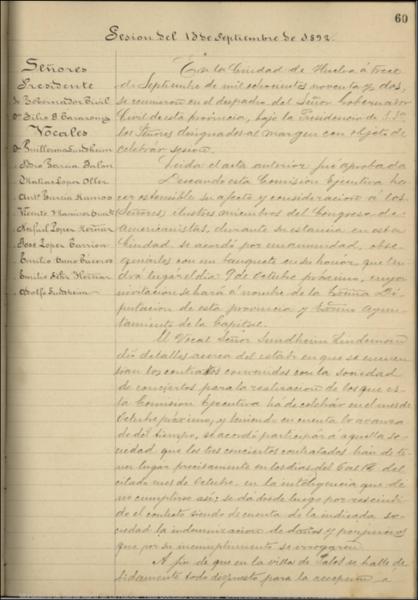 60
Sesion del 13 de Septiembre de 1892.
Señores
Presidente
Sr. Gobernador Civil
Dn Filio B.
Vocales
Dn Guillermo Sundheim
Pedro Garcia Jalon
Matias Lopez Oller
Antº Garcia Ramos
Vicente
Rafael Lopez Hernar
Jose Lopez Carrion
Emilio Cano Caceres
Emilio Hernar
Adolfo Sundheim
En la Ciudad de Huelva á trece
de Septiembre de mil ochocientos noventa y dos,
se reunieron en el despacho del Señor Gobernador
Civil de esta provincia, bajo la Presidencia de S.Sª.
los Señores designados al margen con objeto de
celebrár sesión.
Leida el acta anterior fué aprobada
Deseando esta Comisión Ejecutiva ha-
cer ostensible su afecto y consideración á los
Señores ilustres miembros del Congreso de
Americanistas, durante su estancia en esta
Ciudad se acordó por unanimidad, obse-
quiarlos con un banquete en su honor que ten-
drá lugar el dia 9 de Octubre próximo, cuya
invitación se hará á nombre de la Excma Di-
putación de esta provincia y Excmo Ayun-
tamiento de la Capital.
El Vocal Señor Sundheim Lindeman
dió detalles acerca del estado en que se encuen-
tran los contratos convenidos con la sociedad
de conciertos para la realizacion de los que es-
ta Comision Ejecutiva há de celebrár en el mes de
Octubre próximo, y teniendo en cuenta lo avanza-
do del tiempo, se acordó participar á aquella so-
ciedad que los tres conciertos contratados han de te-
ner lugar precisamente en los dias del 8 al 12 del
citado mes de Octubre, en la inteligencia que de
no cumplirse asi, se dá desde luego por rescindi-
do el contrato siendo de cuenta de la indicada so-
ciedad la indemnizacion de daños y perjuicios
que por su incumplimiento se irrogaren.
A fin de que en la villa de Palos se halle de-
bidamente todo dispuesto para la recepcion á